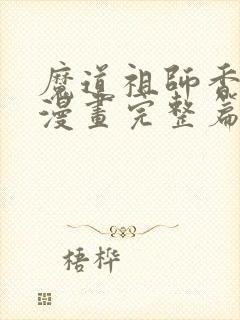 魔道祖師香
漫畫完整篇
梧桦